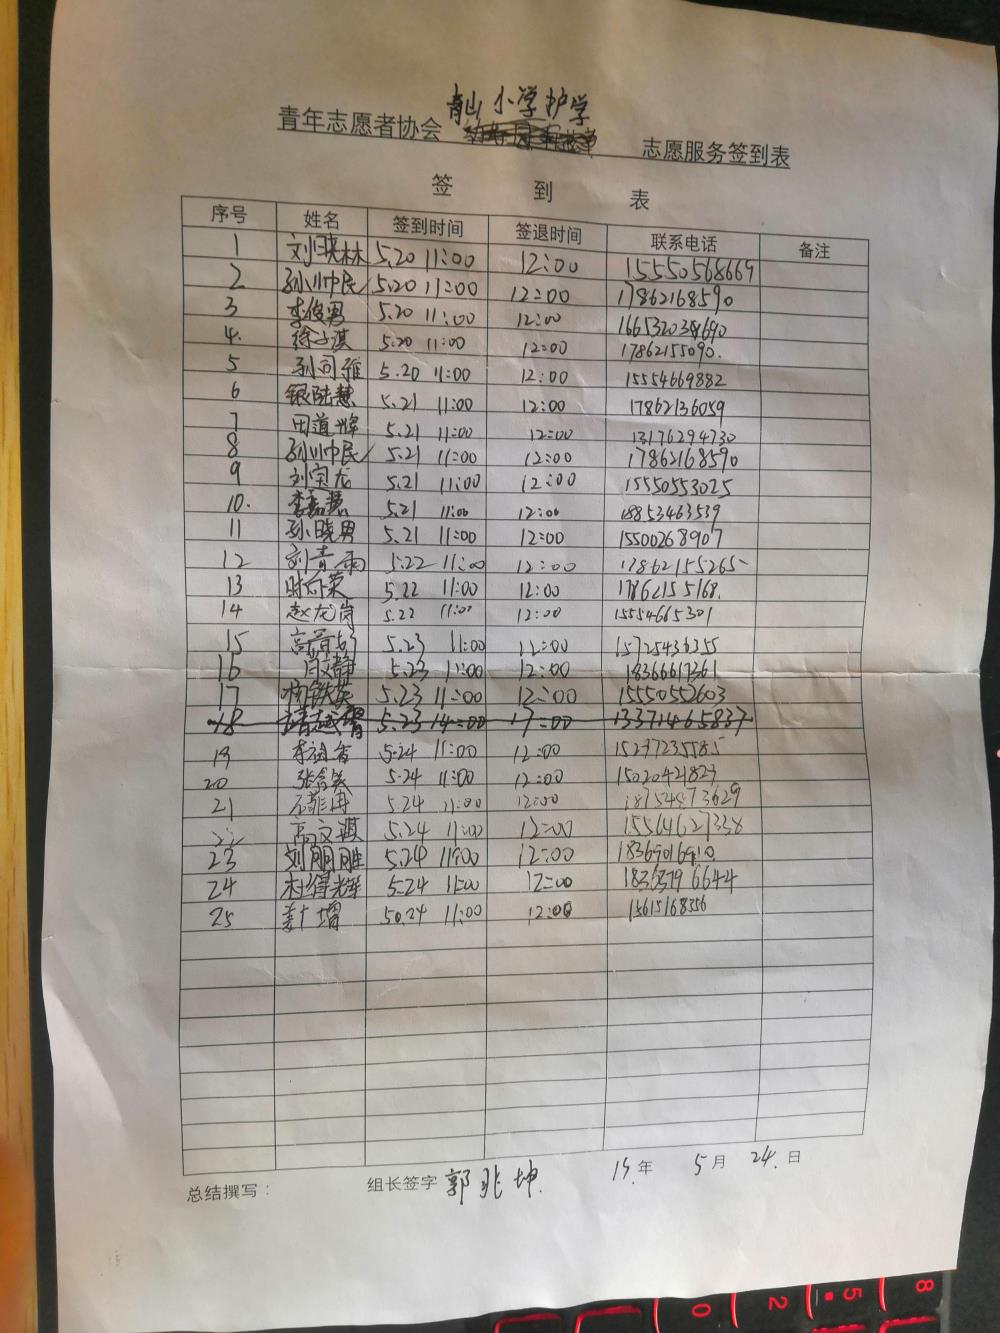 青山小学护学
青年志愿者协会 志愿服务签到表
签到表
序号 姓名 签到时间 签退时间 联系电话 备注
1 刘晓林 5.20 11:00 12:00 15550568669
2 孙川中民 5.20 11:00 12:00 17862168590
3 李俊男 5.20 11:00 12:00
4. 徐子淇 5.20 11:00 12:00 17862155090.
5 5.20 11:00 12:00 15554669882
6 5.21 11:00 12:00 17862136059
7 田道辉 5.21 11:00 12:00 13176294730
8 孙川中民 5.21 11:00 12:00 17862168590
9 刘宝龙 5.21 11:00 12:00 15550553025
10. 李嘉慧 5.21 11:00 12:00 18853463539
11 孙晓男 5.21 11:00 12:00 15500268907
12 刘青雨 5.22 11:00 12:00 17862155265
13 5.22 11:00 12:00 17862155168.
14 赵龙岗 5.22 11:00 12:00 15554665301
15 5.23 11:00 12:00 15725436355
16 肖文静 5.23 11:00 12:00 18366617361
17 杨铁英 5.23 11:00 12:00 15550552603
18 5.23 14:00 17:00 13371465837
19 李祖香 5.24 11:00 12:00 15237235585
20 5.24 11:00 12:00 15020421823
21 石菲冉 5.24 11:00 12:00 18754873629
22 高文淇 5.24 11:00 12:00 15564627338
23 刘丽胜 5.24 11:00 12:00 18369016910
24 杜得辉 5.24 11:00 12:00 18363796644
25 姜增 50.24 11:00 12:00 15615168556
总结撰写： 组长签字 郭兆坤 19.年 5月 24.日
8
5
2
0